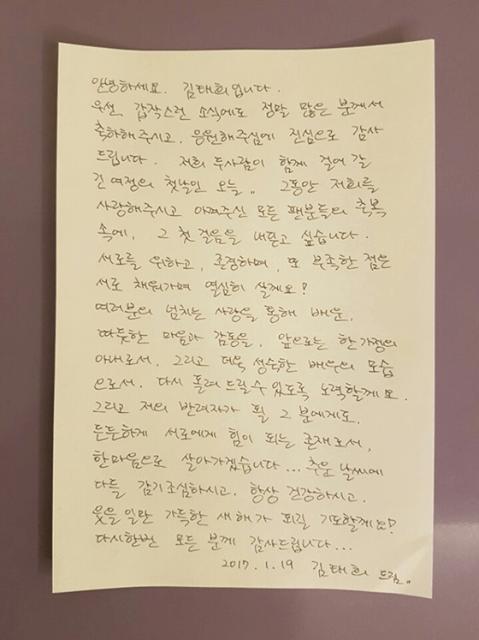 안녕하세요. 김태희입니다.
우선, 갑작스런 소식에도 정말 많은 분께서
축하해주시고, 응원해주심에 진심으로 감사
드립니다. 저희 두사람이 함께 걸어 갈
긴 여정의 첫날인 오늘,, 그동안 저희를
사랑해주시고 아껴주신 모든 팬분들의 축복
속에, 그 첫 걸음을 내딛고 싶습니다.
서로를 위하고, 존경하며, 또 부족한 점은
서로 채워가며 열심히 살게요!
여러분의 넘치는 사랑을 통해 배운,
따듯한 마음과 감동을, 앞으로는 한 가정의
아내로서, 그리고 더욱 성숙한 배우의 모습
으로서, 다시 돌려 드릴 수 있도록 노력할께요.
그리고 저의 반려자가 될 그 분에게도,
든든하게 서로에게 힘이 되는 존재로서,
한마음으로 살아가겠습니다... 추운 날씨에
다들 감기조심하시고, 항상 건강하시고,
웃을 일만 가득한 새해가 되길 기도할께요!
다시한번 모든 분께 감사드립니다...
2017. 1. 19 김태희 드림.